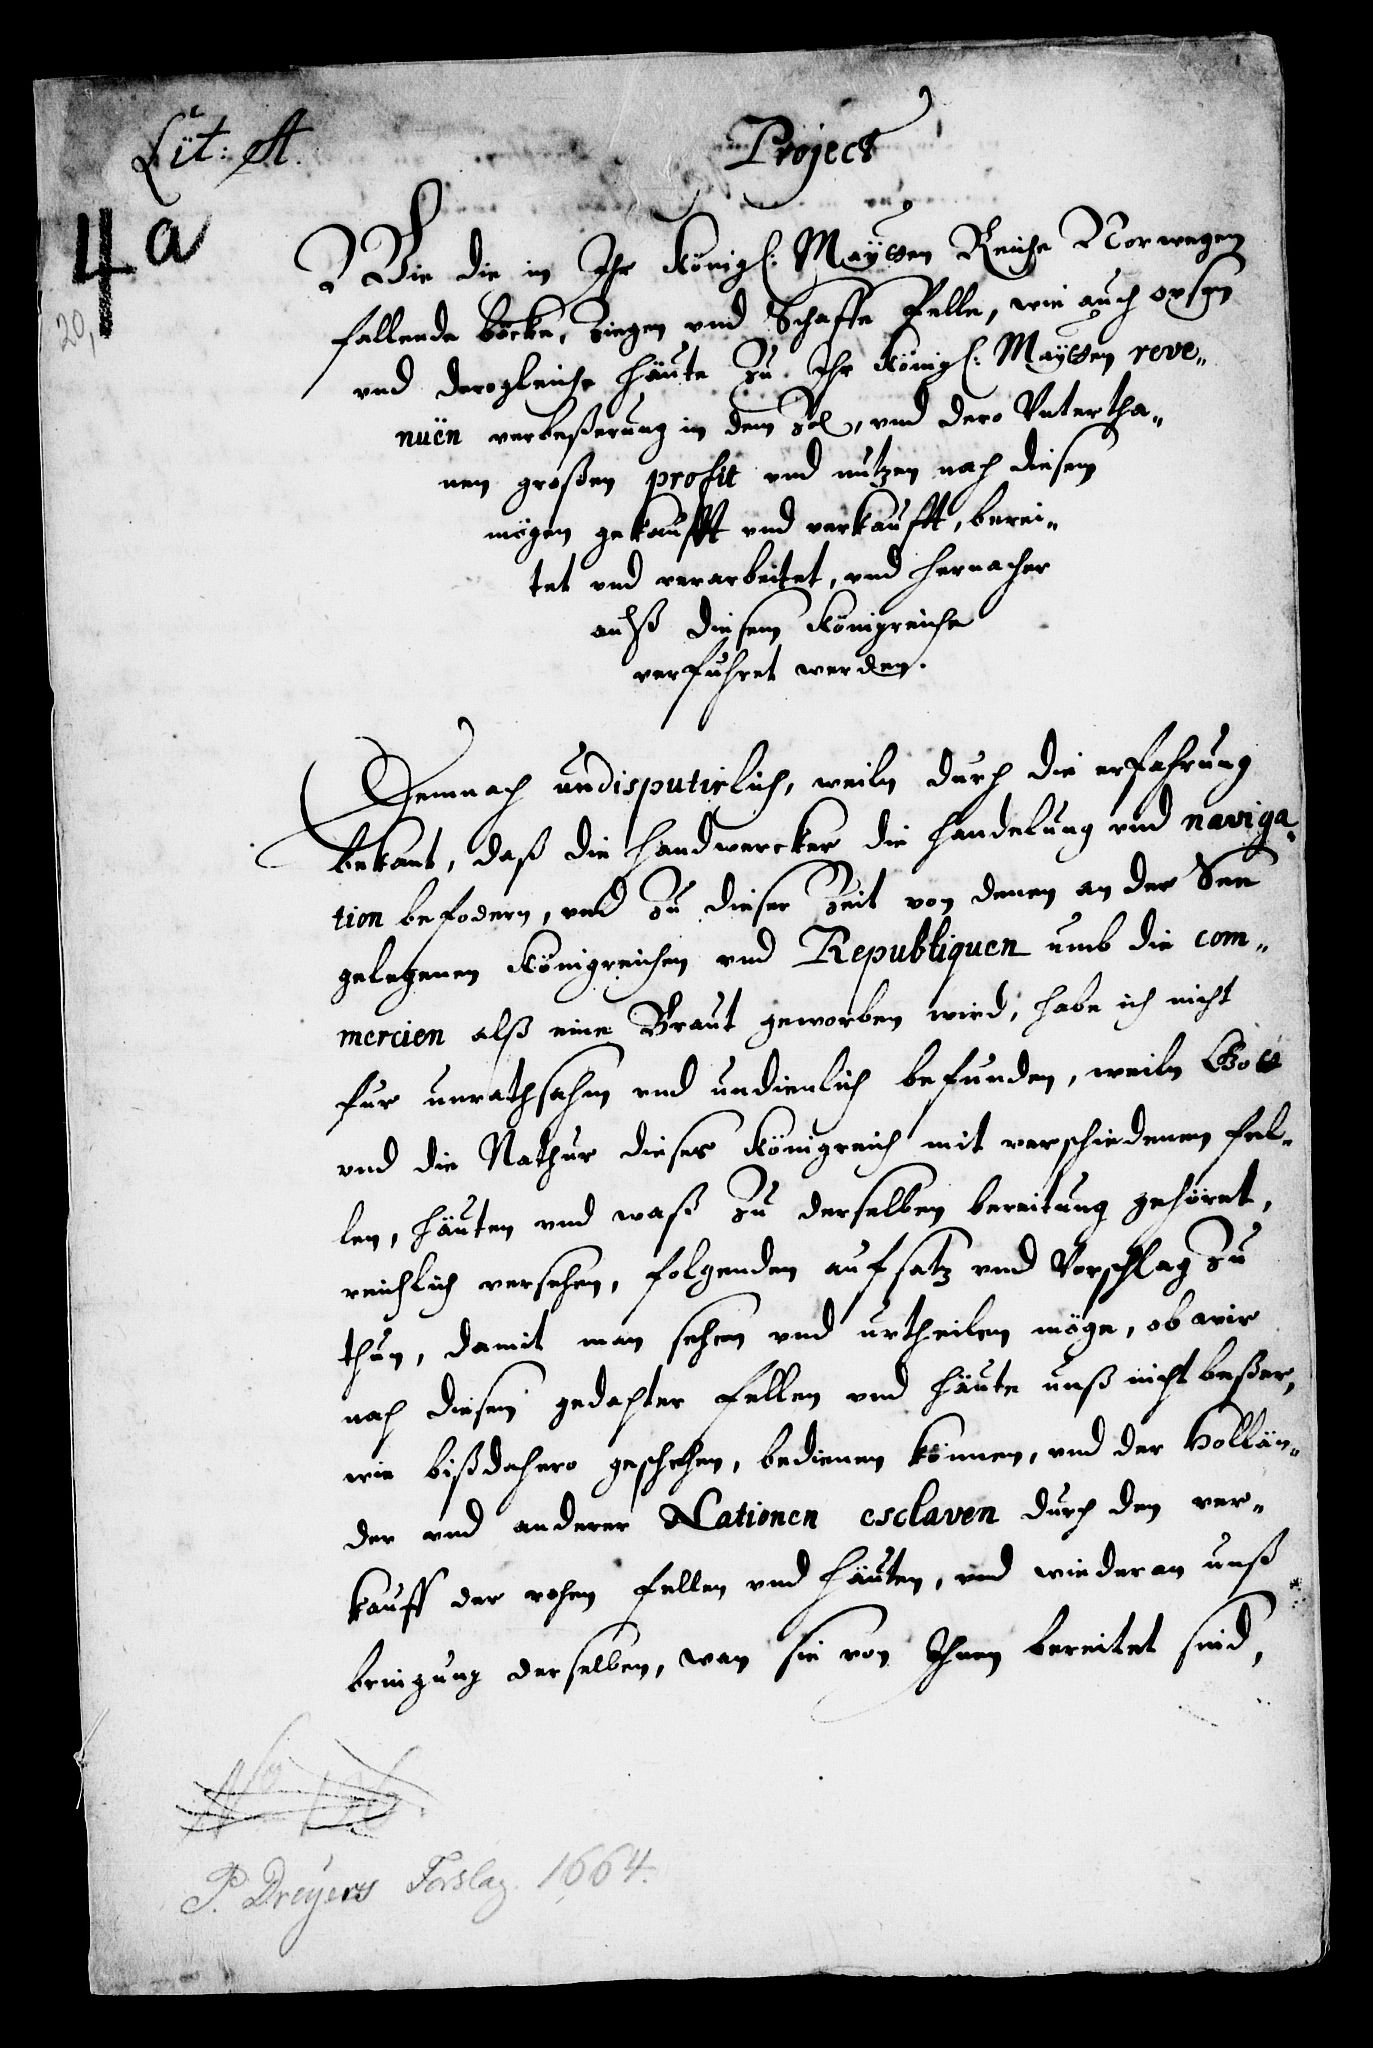 Lit: A.
Project
4 a
20,
Wie die in Ihr Königl: Maytten Reiche Norwegen
fallende böcke, Ziegen vnd Schaffe Felle, wie auch oxsen
vnd derogleiche häute Zu Ihr Königl: Maytten reve„
nuën verbeßerung in dem Zol, vnd dero Vntertha„
nen großen profit vnd nutzen nach diesem
mögen gekaufft vnd verkaufft, berei„
tet vnd verarbeitet, vnd hernacher
auß diesem Königreiche
verfuhret werden.
Demnach undisputirlich, weiln durch die erfahrung
bekant, daß die handwercker die handelung vnd naviga„
tion befodern, vnd Zu dieser Zeit von denen an der See
gelegenen Königreichen vnd Republiquen umb die com„
mercien alß eine Braut geworben wird, habe ich nicht
fur unrathsahm vnd undienlich befunden, weiln Gott
vnd die Nathur dieses Königreich mit verschiedenen fel„
len, häuten vnd waß Zu derselben bereitung gehöret,
reichlich versehen, folgenden aufsatz vnd Vorschlag Zu
thun, damit man sehen vnd urtheilen möge, ob wir
nach diesem gedachter fellen vnd häute unß nicht beßer,
wie bißdahero geschehen, bedienen können, vnd der Hollän„
der vnd anderer Nationen esclaven durch den ver„
kauff der rohen fellen vnd häuten, vnd wiederan unß
bringung derselben, wan sie von Ihnen bereitet sind,
P. Dreyers Forslag. 1664.